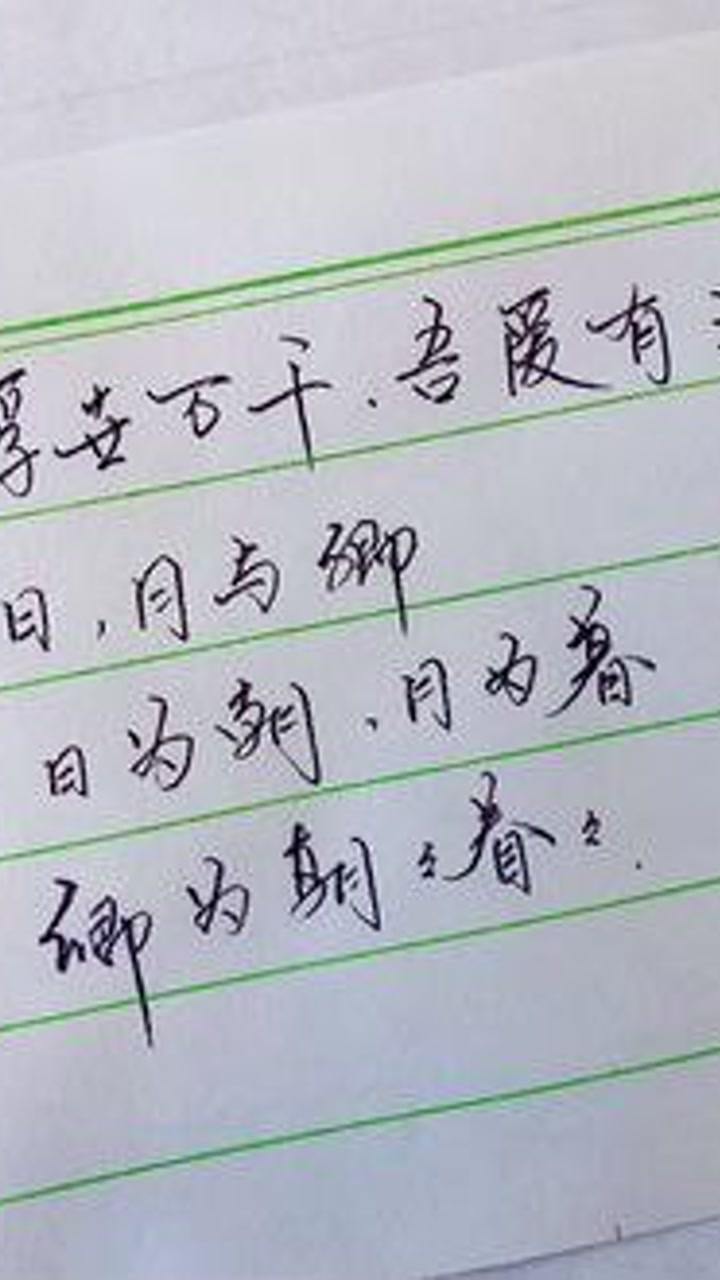 浮世万千、吾爱有三
日,月与卿
日为朝、月为暮
卿为朝々暮々.